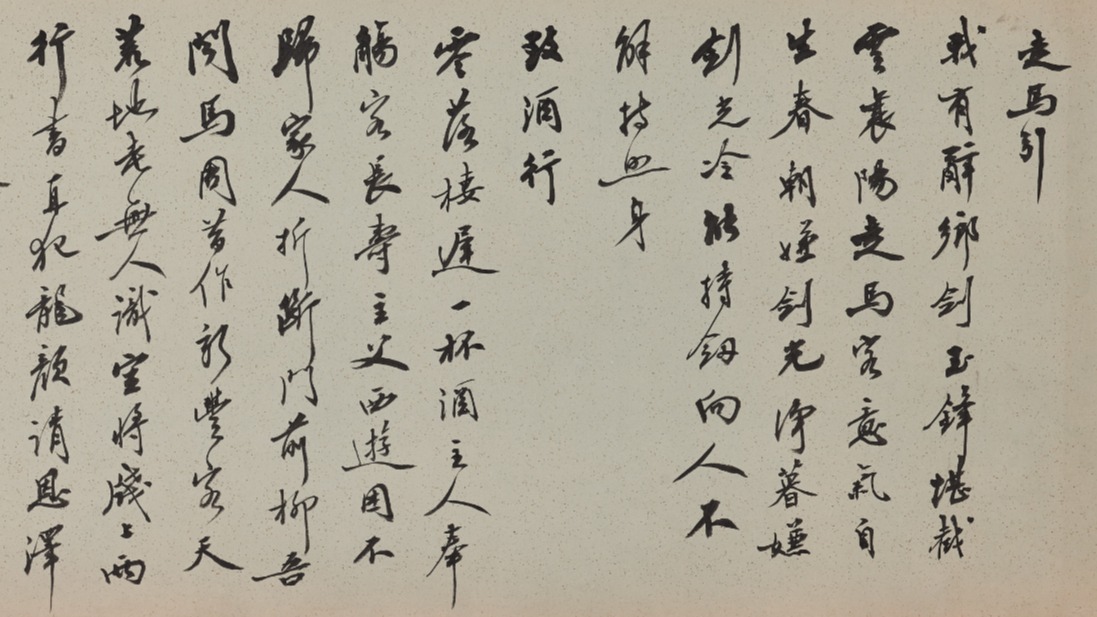 走馬引
我有辭鄉劍玉鋒堪截
雲襄陽走馬客意氣自
生春朝嫌劍光淨暮嫌
劍光冷能持釼向人不
解持照身
致酒行
零落棲遲一杯酒主人奉
觴客長壽主父西遊困不
歸家人折斷門前柳吾
聞馬周昔作新豐客天
荒地老無人識空將牋上兩
行書直犯龍顏請恩澤